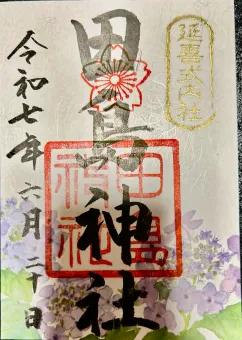 延喜式内社
田島神社
田島神社
令和七年六月二十日